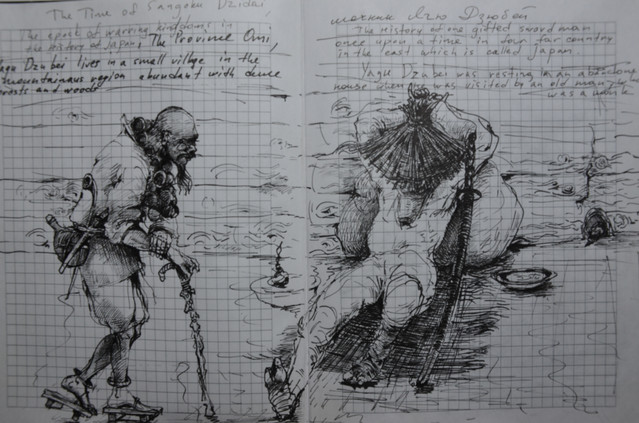 The Time of Sangoku Dzidai,
The epoch of warring kingdoms in
the history of Japan, The Province Omi,
Yagu Dzubei lives in a small village in the
mountainous region abundant with dence
and woods
Дзюбей
The history of one gifted swordman
once upon a time in dear far country
in the east which is called Japan
Yagu Dzubei was resting in an abandoned
house when he was visited by an old man, who
was a monk